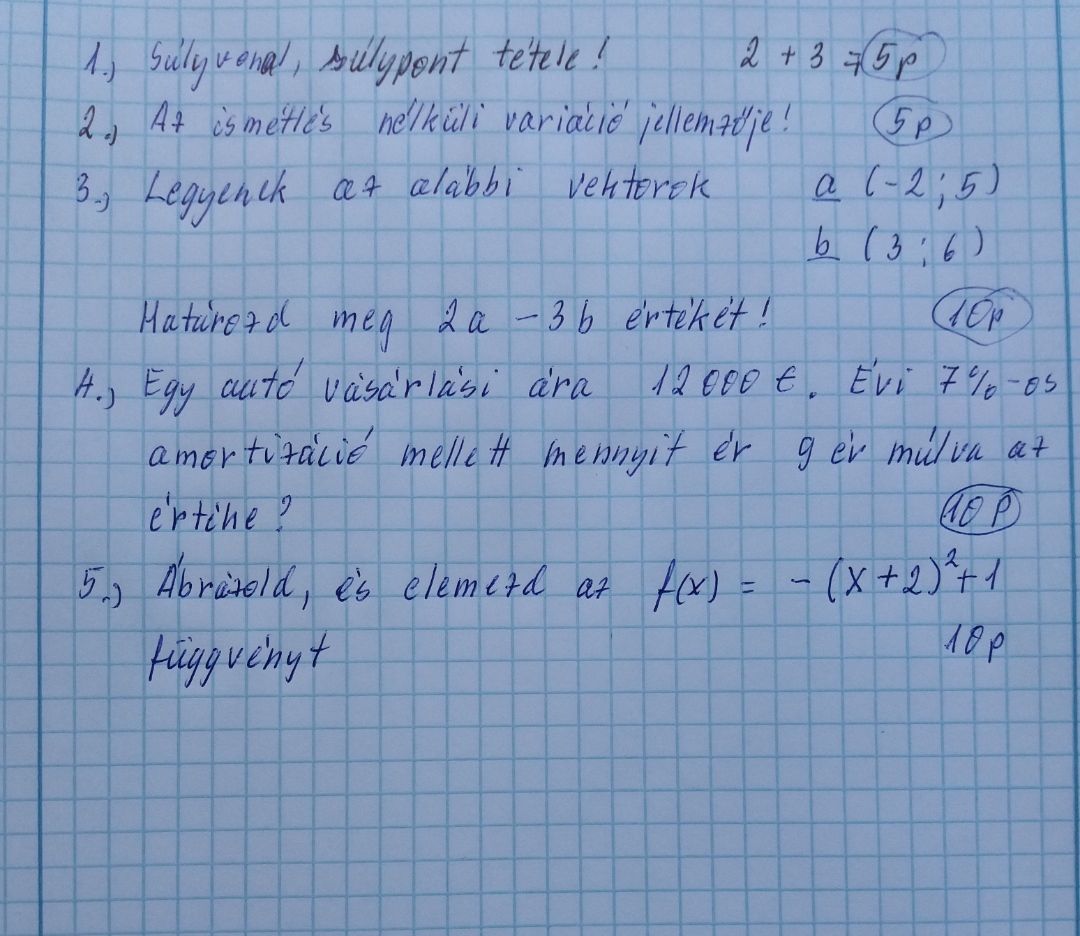 1., Súlyvonal, súlypont tétele! 2 + 3 = 5p
2., Az ismétlés nélküli variáció jellemzője! 5p
3., Legyenek az alábbi vektorok a (-2; 5)
b (3; 6)
Határozd meg 2a - 3b értékét! 10p
4., Egy autó vásárlási ára 12 000 €. Évi 7%-os
amortizáció mellett mennyit ér 9 év múlva az
értéke? 10p
5., Ábrázold, és elemezd az f(x) = -(x+2)²+1
függvényt 10p